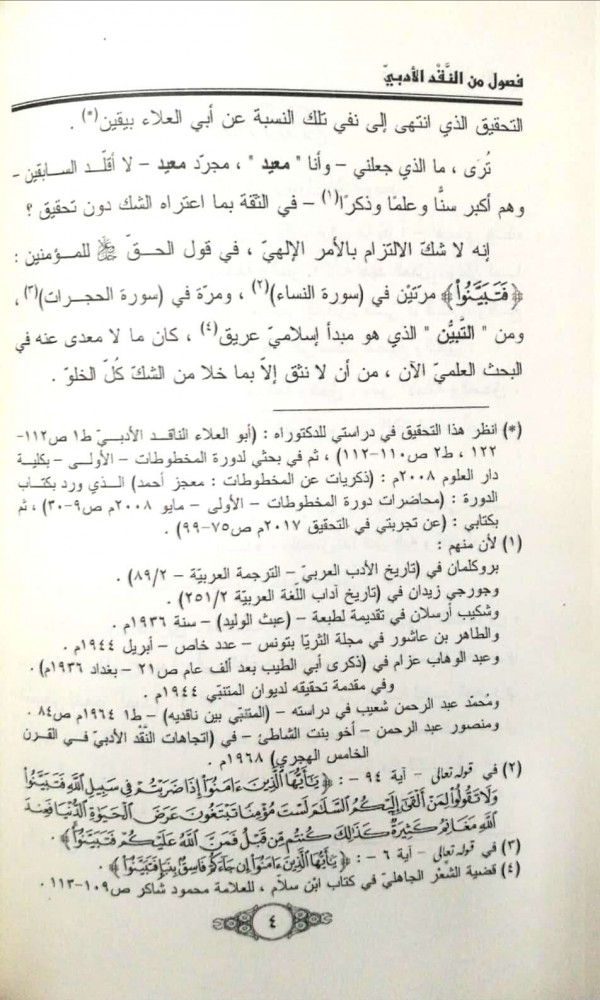 فصول من النَّقْد الأدبيّ
التحقيق الذي انتهى إلى نفي تلك النسبة عن أبي العلاء بيقين(*) .
تُرَى ، ما الذي جعلني – وأنا " معيد " ، مجرّد معيد – لا أقلّد السابقين –
وهم أكبر سنًّا وعلمًا وذكرًا(١) – في الثقة بما اعتراه الشك دون تحقيق ؟
إنه لا شكّ الالتزام بالأمر الإلهيّ ، في قول الحقّ ﷻ للمؤمنين :
﴿ فَتَبَيَّنُواْ ﴾ مرّتيْن في (سورة النساء)(٢) ، ومرّة في (سورة الحجرات)(٣) ،
ومن " التَّبيُّن " الذي هو مبدأ إسلاميّ عريق(٤) ، كان ما لا معدى عنه في
البحث العلميّ الآن ، من أن لا نثق إلاّ بما خلا من الشكّ كلّ الخلوّ .
(*) انظر هذا التحقيق في دراستي للدكتوراه : (أبو العلاء الناقد الأدبيّ ط١ ص١١٢–
١٢٢ ، ط٢ ص١١٠–١١٢) ، ثم في بحثي لدورة المخطوطات – الأولى – بكلية
دار العلوم ٢٠٠٨م : (ذكريات عن المخطوطات : معجز أحمد) الذي ورد بكتاب
الدورة : (محاضرات دورة المخطوطات – الأولى – مايو ٢٠٠٨م ص٩–٣٠) ، ثم
بكتابي : (عن تجربتي في التحقيق ٢٠١٧م ص٧٥–٩٩) .
(١) لأن منهم :
بروكلمان في (تاريخ الأدب العربيّ – الترجمة العربيّة – ٨٩/٢) .
وجورجي زيدان في (تاريخ آداب اللّغة العربيّة ٢٥١/٢) .
وشكيب أرسلان في تقديمة لطبعة – (عبث الوليد) – سنة ١٩٣٦م .
والطاهر بن عاشور في مجلة الثريّا بتونس – عدد خاص – أبريل ١٩٤٤م .
وعبد الوهاب عزام في (ذكرى أبي الطيب بعد ألف عام ص٢١ – بغداد ١٩٣٦م) .
وفي مقدمة تحقيقه لديوان المتنبّي ١٩٤٤م .
ومُحمّد عبد الرحمن شعيب في دراسته – (المتنبّي بين ناقديه) – ط١ ١٩٦٤م ص٨٤ .
ومنصور عبد الرحمن – أخو بنت الشاطئ – في (اتجاهات النَّقْد الأدبيّ في القرن
الخامس الهجري) ١٩٦٨م .
(٢) في قوله تعالى – آية ٩٤ – : ﴿ يَٰٓأَيُّهَا ٱلَّذِينَ ءَامَنُوٓاْ إِذَا ضَرَبۡتُمۡ فِي سَبِيلِ ٱللَّهِ فَتَبَيَّنُواْ
وَلَا تَقُولُواْ لِمَنۡ أَلۡقَىٰٓ إِلَيۡكُمُ ٱلسَّلَٰمَ لَسۡتَ مُؤۡمِنٗا تَبۡتَغُونَ عَرَضَ ٱلۡحَيَوٰةِ ٱلدُّنۡيَا فَعِندَ
ٱللَّهِ مَغَانِمُ كَثِيرَةٞۚ كَذَٰلِكَ كُنتُم مِّن قَبۡلُ فَمَنَّ ٱللَّهُ عَلَيۡكُمۡ فَتَبَيَّنُوٓاْ ﴾ .
(٣) في قوله تعالى – آية ٦ – : ﴿ يَٰٓأَيُّهَا ٱلَّذِينَ ءَامَنُوٓاْ إِن جَآءَكُمۡ فَاسِقُۢ بِنَبَإٖ فَتَبَيَّنُوٓاْ ﴾ .
(٤) قضية الشّعْر الجاهليّ في كتاب ابن سلاّم ، للعلامة محمود شاكر ص١٠٩–١١٣ .
٤